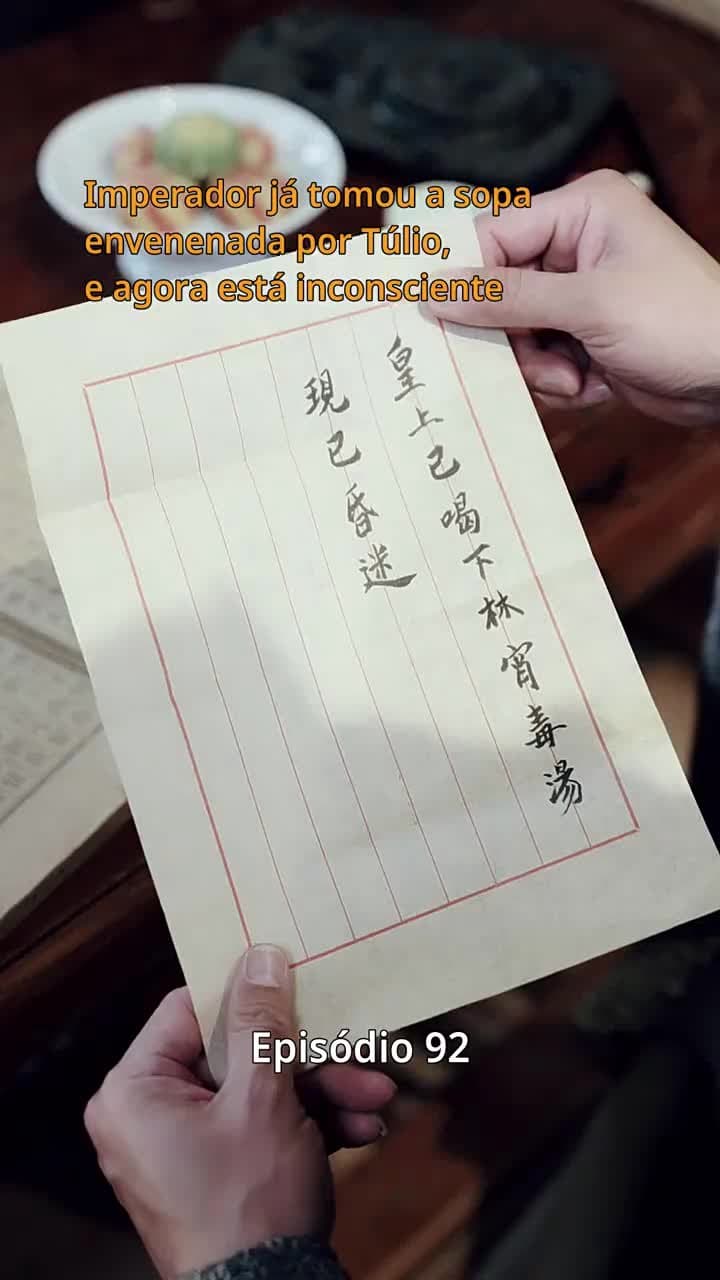 Imperador já tomou a sopa
envenenada por Túlio,
e agora está inconsciente
皇上已喝下林宵毒湯
現已昏迷
Episódio 92